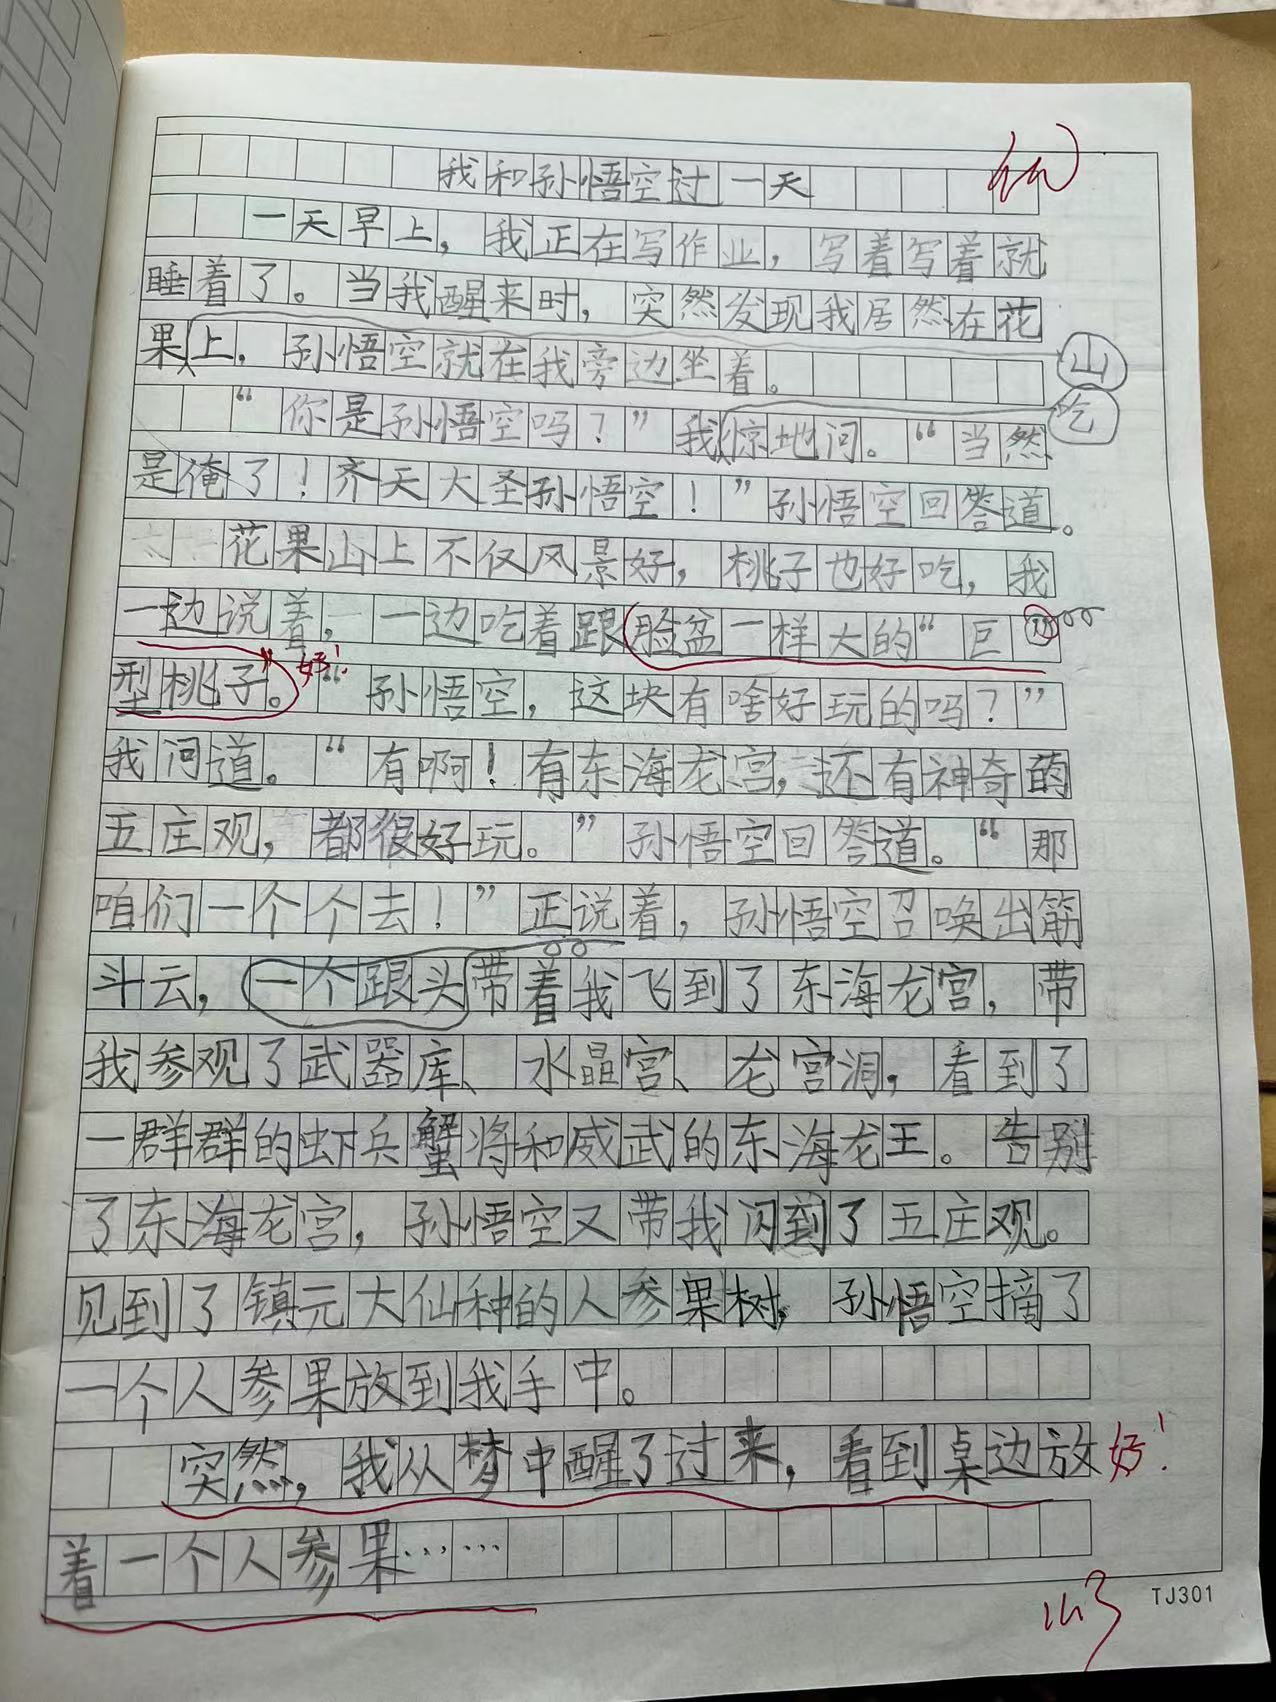 我和孙悟空过一天
一天早上，我正在写作业，写着写着就
睡着了。当我醒来时，突然发现我居然在花
果山上，孙悟空就在我旁边坐着。
“你是孙悟空吗？”我吃惊地问。“当然
是俺了！齐天大圣孙悟空！”孙悟空回答道。
花果山上不仅风景好，桃子也好吃，我
一边说着，一边吃着跟脸盆一样大的“巨
型桃子”。好！“孙悟空，这块有啥好玩的吗？”
我问道。“有啊！有东海龙宫，还有神奇的
五庄观，都很好玩。”孙悟空回答道。“那
咱们一个个去！”正说着，孙悟空召唤出筋
斗云，一个跟头带着我飞到了东海龙宫，带
我参观了武器库、水晶宫、龙宫洞，看到了
一群群的虾兵蟹将和威武的东海龙王。告别
了东海龙宫，孙悟空又带我闪到了五庄观。
见到了镇元大仙种的人参果树，孙悟空摘了
一个人参果放到我手中。
突然，我从梦中醒了过来，看到桌边放好！
着一个人参果……
TJ301